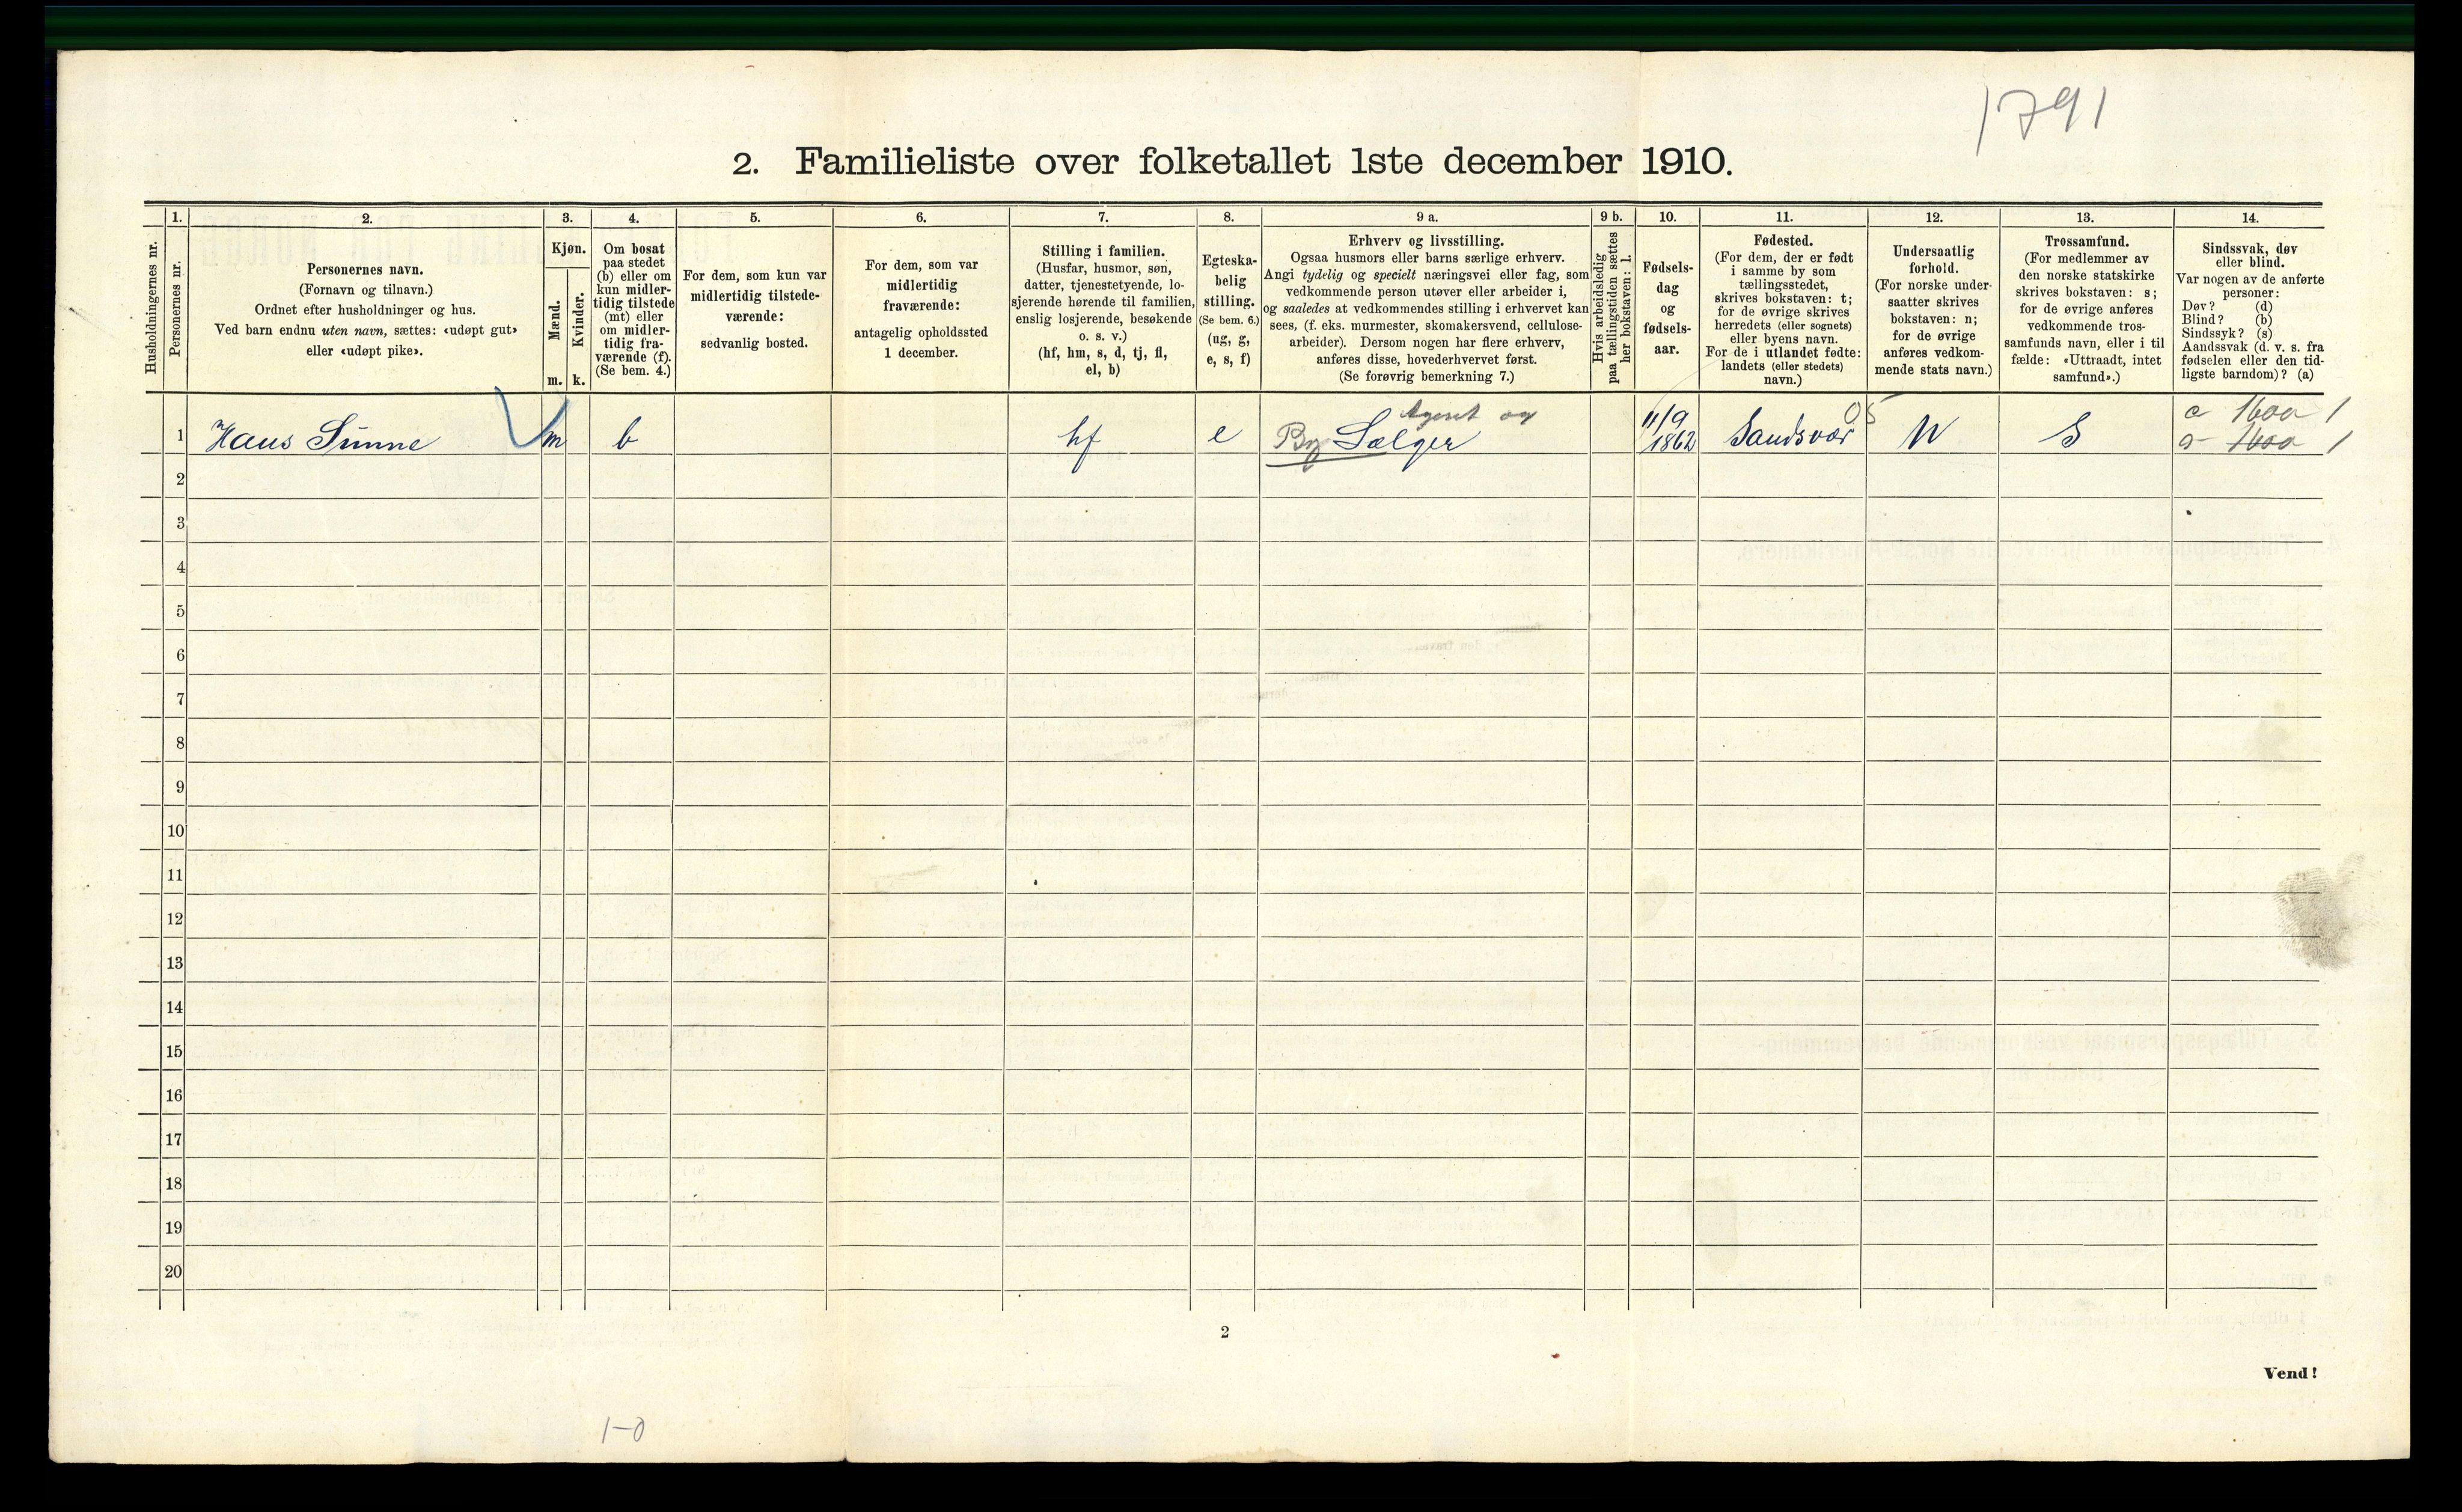 1791
2. Familieliste over folketallet 1ste december 1910.
Husholdningernes nr.
1.
Personernes nr.
2.
Personernes navn.
(Fornavn og tilnavn.)
Ordnet efter husholdninger og hus.
Ved barn endnu uten navn, sættes: «udøpt gut»
eller «udøpt pike».
3.
Kjøn.
Mænd.
m.
Kvinder.
k.
4.
Om bosat
paa stedet
(b) eller om
kun midler-
tidig tilstede
(mt) eller
om midler-
tidig fra-
værende (f).
(Se bem. 4.)
5.
For dem, som kun var
midlertidig tilstede-
værende:
sedvanlig bosted.
6.
For dem, som var
midlertidig
fraværende:
antagelig opholdssted
1 december.
7.
Stilling i familien.
(Husfar, husmor, søn,
datter, tjenestetyende, lo-
sjerende hørende til familien,
enslig losjerende, besøkende
o. s. v.)
(hf, hm, s, d, tj, fl,
el, b)
8.
Egteska-
belig
stilling.
(Se bem. 6.)
(ug, g,
e, s, f)
9 a.
Erhverv og livsstilling.
Ogsaa husmors eller barns særlige erhverv.
Angi tydelig og specielt næringsvei eller fag, som
vedkommende person utøver eller arbeider i,
og saaledes at vedkommendes stilling i erhvervet kan
sees, (f. eks. murmester, skomakersvend, cellulose-
arbeider). Dersom nogen har flere erhverv,
anføres disse, hovederhvervet først.
(Se forøvrig bemerkning 7.)
9 b.
Hvis arbeidsledig
paa tællingstiden sættes
her bokstaven: l.
10.
Fødsels-
dag
og
fødsels-
aar.
11.
Fødested.
(For dem, der er født
i samme by som
tællingsstedet,
skrives bokstaven: t;
for de øvrige skrives
herredets (eller sognets)
eller byens navn.
For de i utlandet fødte:
landets (eller stedets)
navn.)
12.
Undersaatlig
forhold.
(For norske under-
saatter skrives
bokstaven: n;
for de øvrige
anføres vedkom-
mende stats navn.)
13.
Trossamfund.
(For medlemmer av
den norske statskirke
skrives bokstaven: s;
for de øvrige anføres
vedkommende tros-
samfunds navn, eller i til
fælde: «Uttraadt, intet
samfund».)
14.
Sindssvak, døv
eller blind.
Var nogen av de anførte
personer:
Døv? (d)
Blind? (b)
Sindssyk? (s)
Aandssvak (d. v. s. fra
fødselen eller den tid-
ligste barndom)? (a)
Agent og 05 1600 1
1 Hans Sunne m b hf e By Sælger 11/9 1862 Sandsvær N S 1600 1
2
3
4
5
6
7
8
9
10
11
12
13
14
15
16
17
18
19
20
2
Vend!
1-0